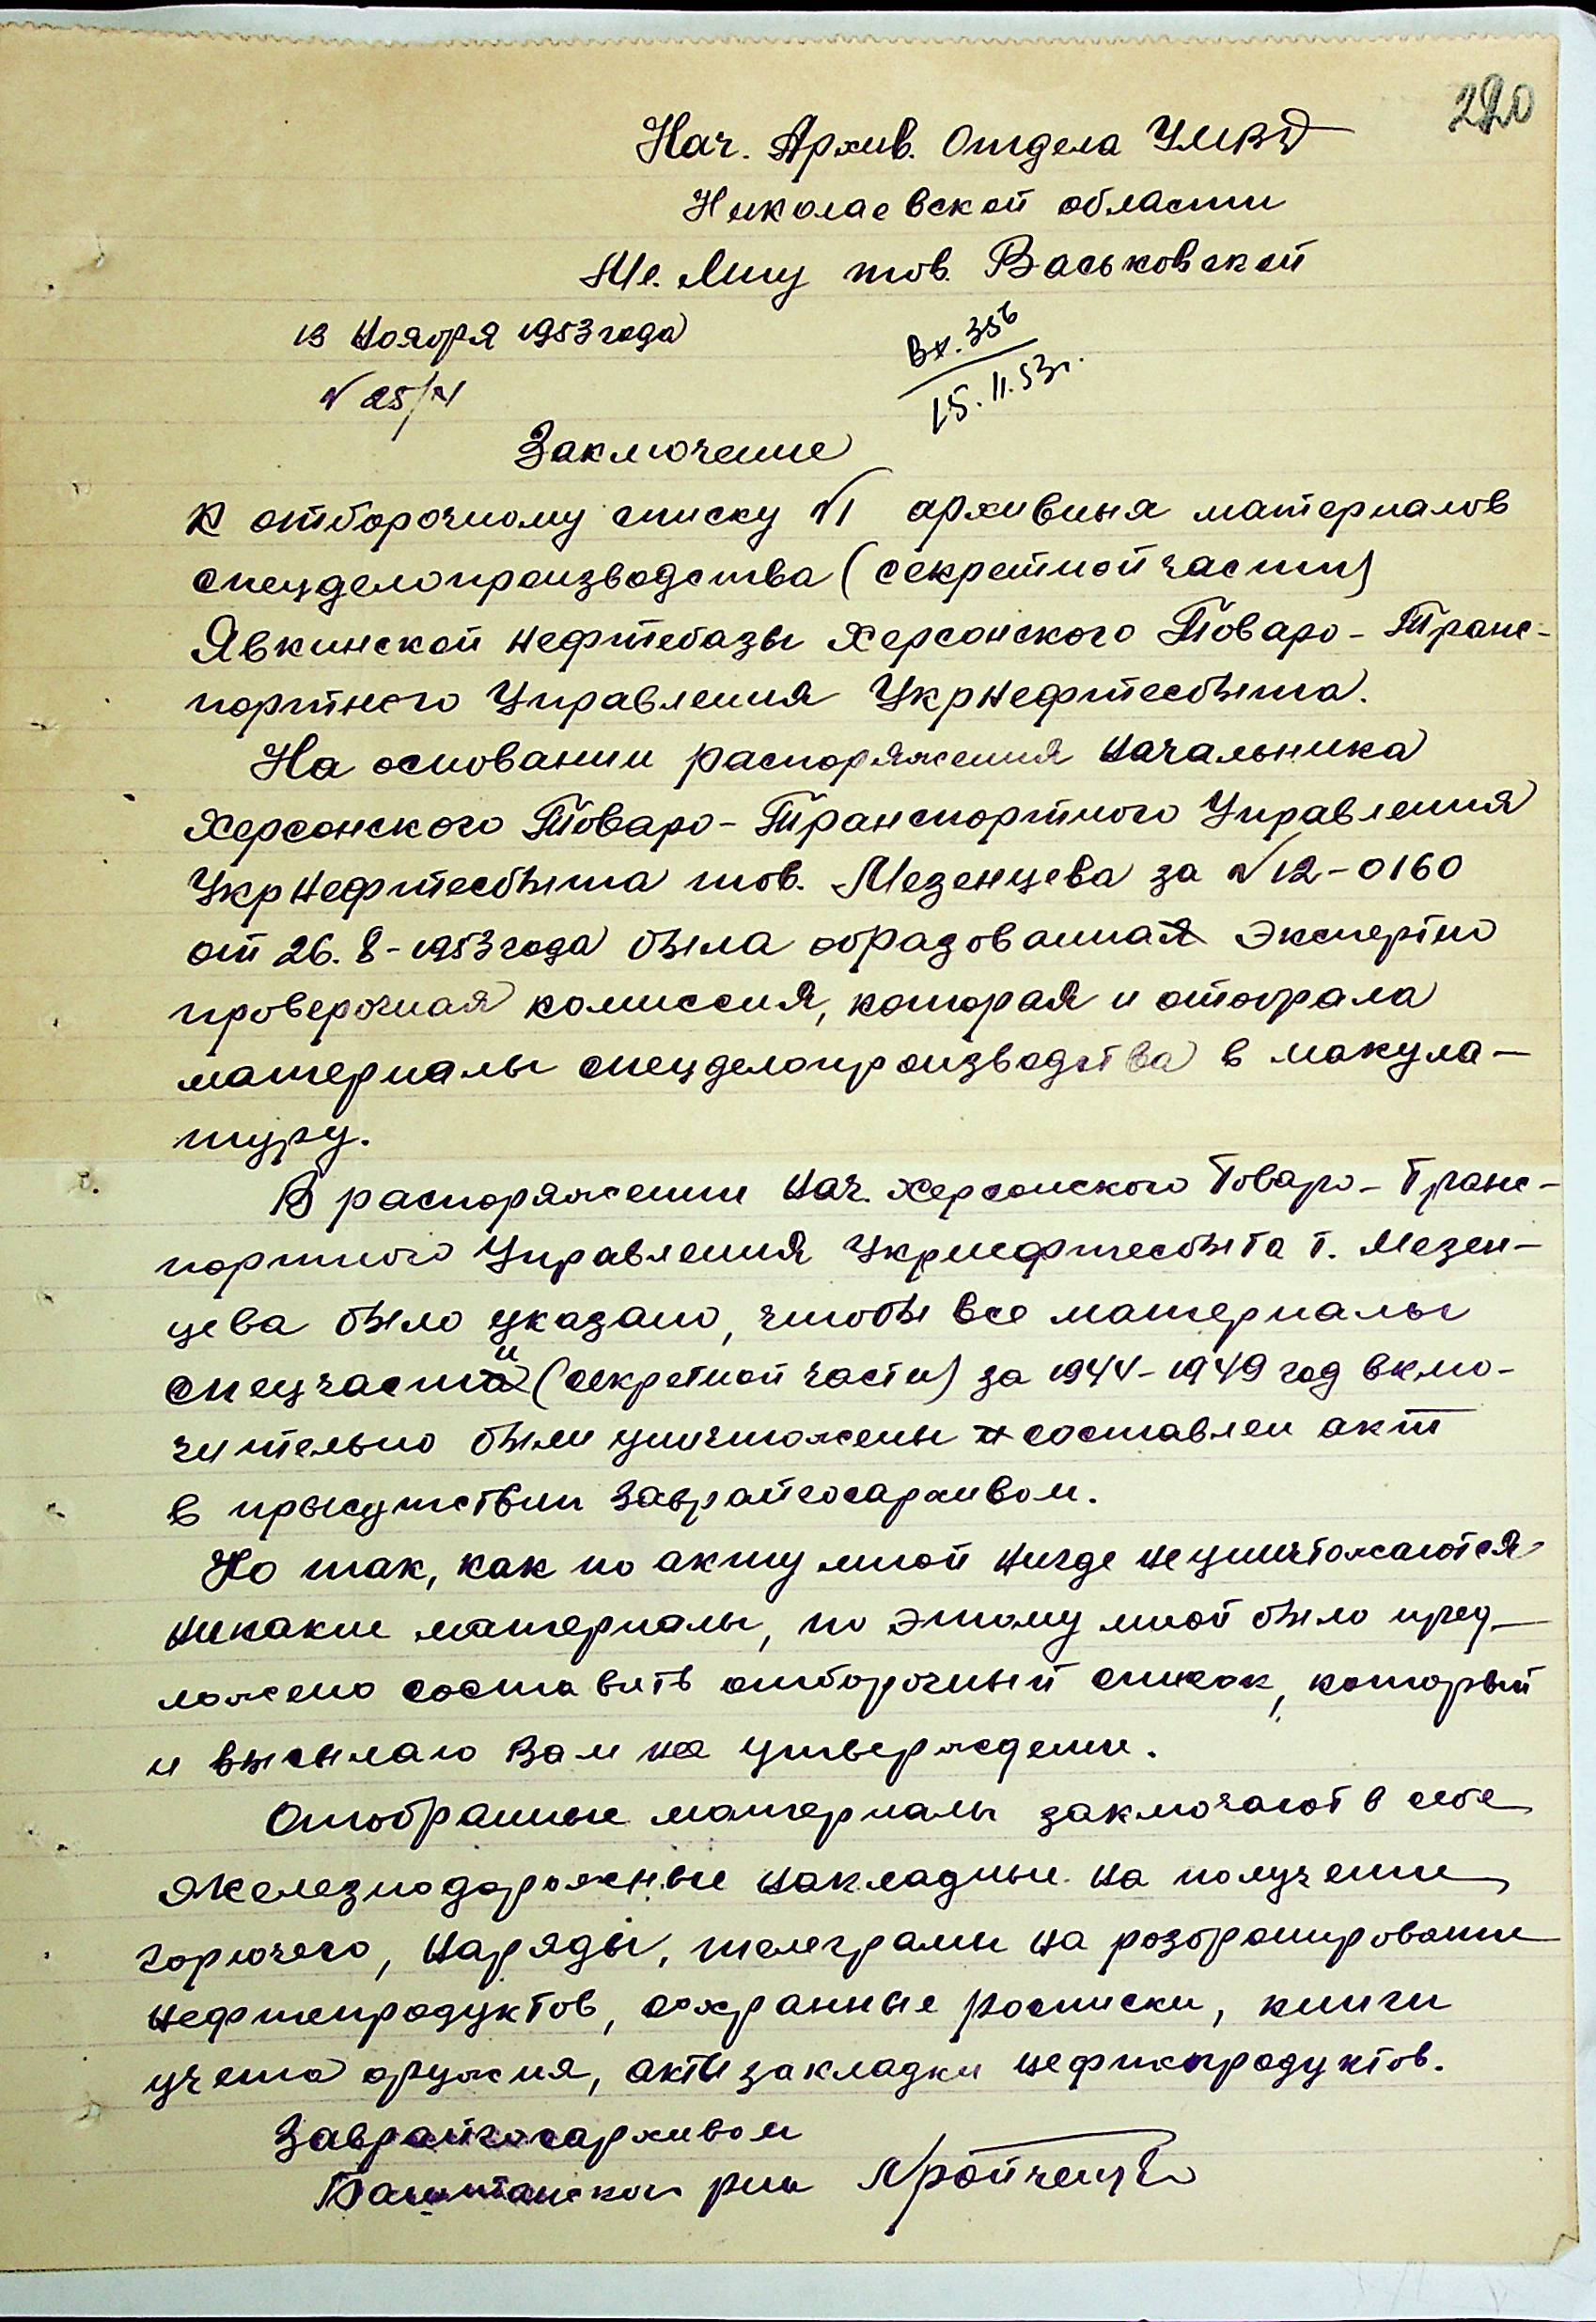 220
Нач. Архив. Отдела УМВД
Николаевской области
Мл. Л-ту тов. Васьковской
13 Ноября 1953 года
Вх. 356
15.11.53г.
№ 25/
Заключение
к отборочному списку №1 архивныя материалов
спецделопроизводства (секретной части)
Явкинской нефтебазы Херсонского Товаро-Транс-
портного Управления Укрнефтесбыта.
На основании распоряжения Начальника
Херсонского Товаро-Транспортного Управления
Укрнефтесбыта тов. Мезенцева за №12-0160
от 26.8-1953 года была образованная Экспертно
проверочная комиссия, которая и отобрала
материалы спецделопроизводства в макула-
туру.
В распоряжении Нач. Херсонского Товаро-Транс-
портного Управления Укрнефтесбыта т. Мезен-
цева было указано, чтобы все материалы
спецчасти (секретной части) за 1944-1949 год вклю-
чительно были уничтожены и составлен акт
в прысутствии Заврайгосархивом.
Но так, как по акту мной нигде не уничтожаются
никакие материалы, по этому мной было пред-
ложено составить отборочный список, который
и высылаю Вам на утверждение.
Отобранные материалы заключают в себе
железнодорожные накладные на получение
горючего, наряды, телеграми на розбронирование
нефтепродуктов, сохранные росписки, книги
учета оружия, акты закладки нефтепродуктов.
Заврайгосархивом
Баштанского р-на